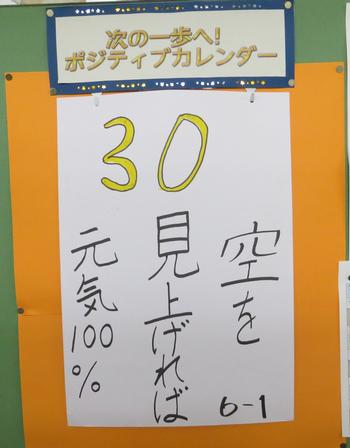 次の一歩へ!
ポジティブカレンダー
30
空を
見上げれば
元気100%
6-1